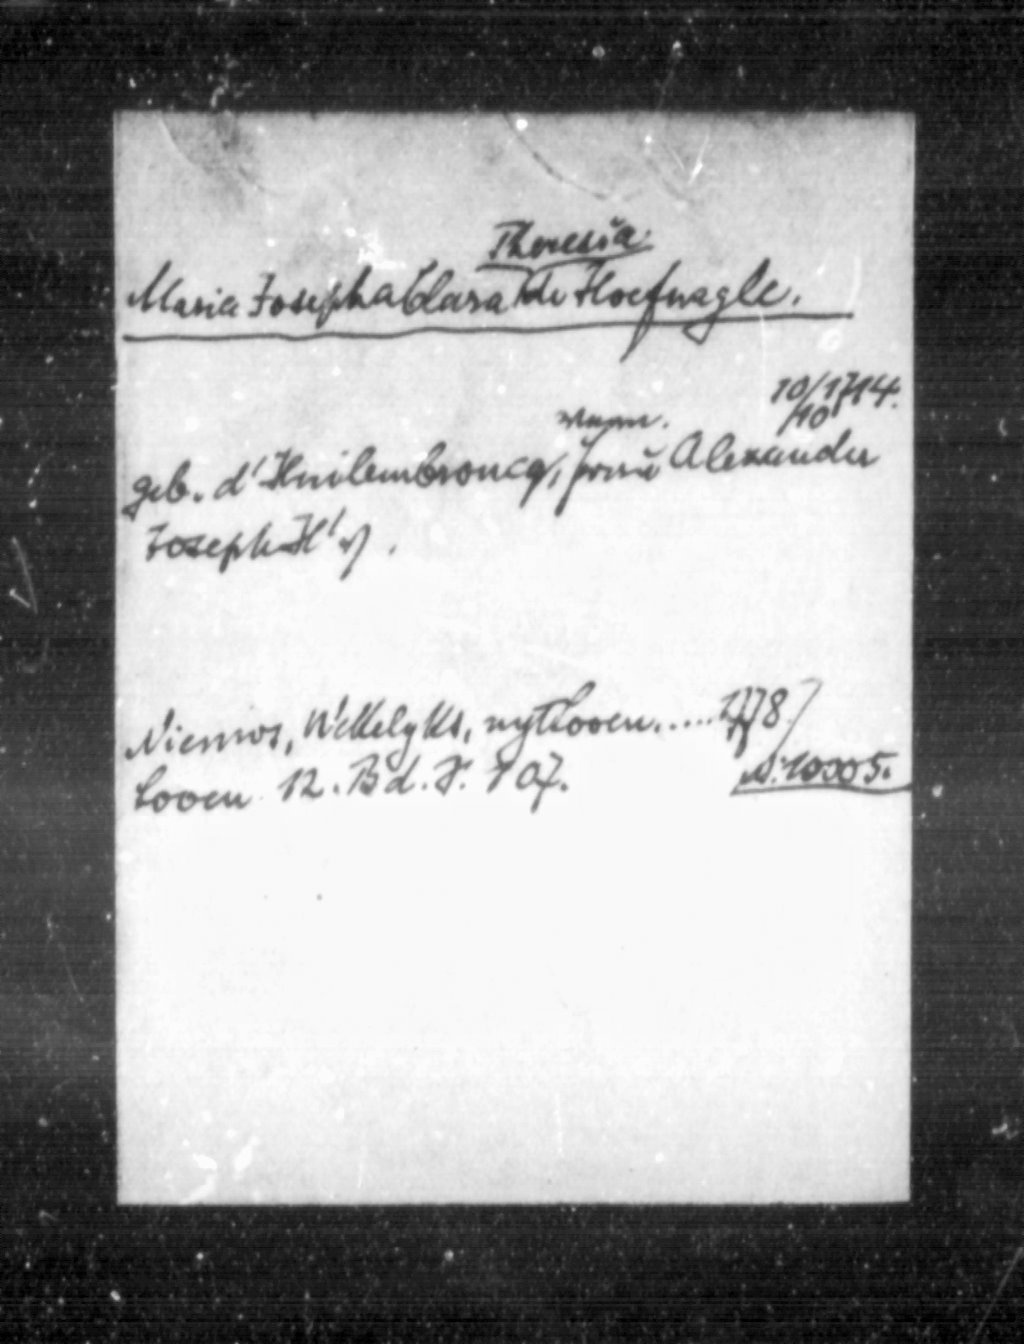 Theresia
Maria Josepha Clara de Hoefnagle.
10/1714.
10
geb. d'Huilembroucq, Alexander
Joseph H'
Nieuws, Wekelyks, uyt Loven..... 1778
Loven 12. Bd. S. 107.